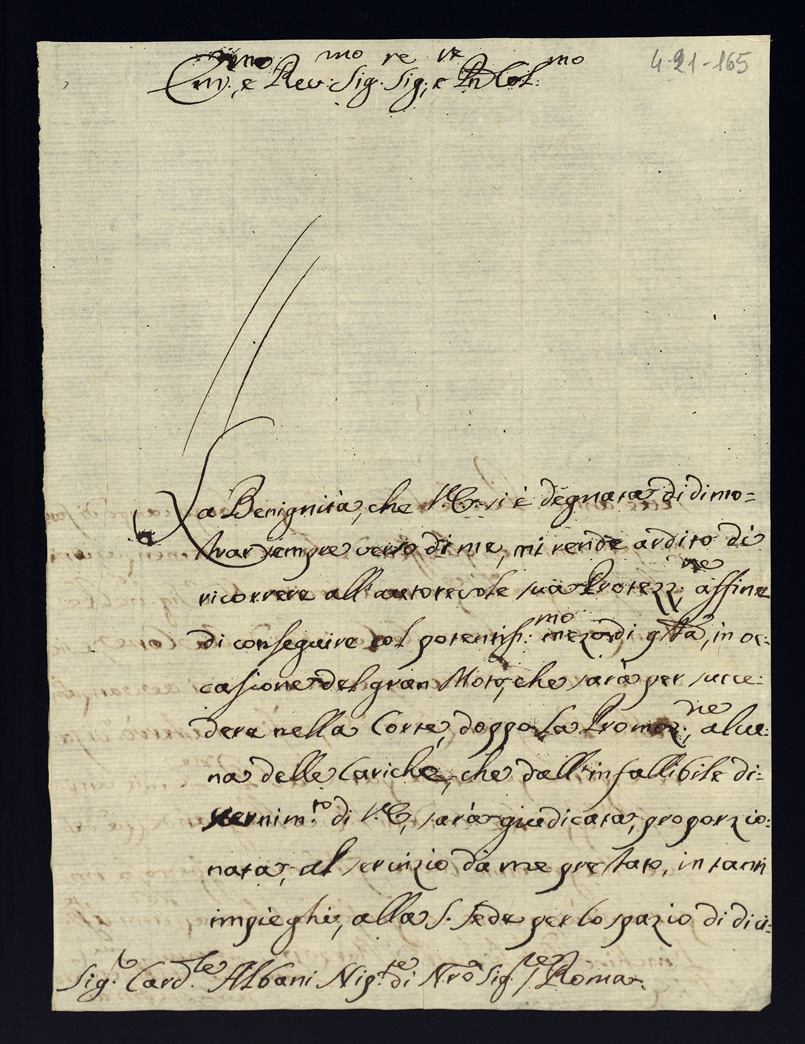 4-21-165
Em.mo e Rev.mo Sig.re Sig.re e Pn Col.mo
La Benignità, che V.E. si è degnata di dimo=
strar sempre verso di me, mi rende ardito di
ricorrere all'autorevole sua Protez.ne, affine
di conseguire col potentiss.mo mezo di q.sta, in oc=
casione del gran Moto, che sarà per succe=
dere nella Corte, doppo la Promoz.ne, alcu=
na delle Cariche, che dall'infallibile di=
scernim.to di V.E. sarà giudicata, proporzio=
nata, al servizio da me prestato, in tanti
impieghi, alla S. Sede per lo spazio di dici=
Sig.r Card.le Albani Nip.te di N.ro Sig.re / Roma